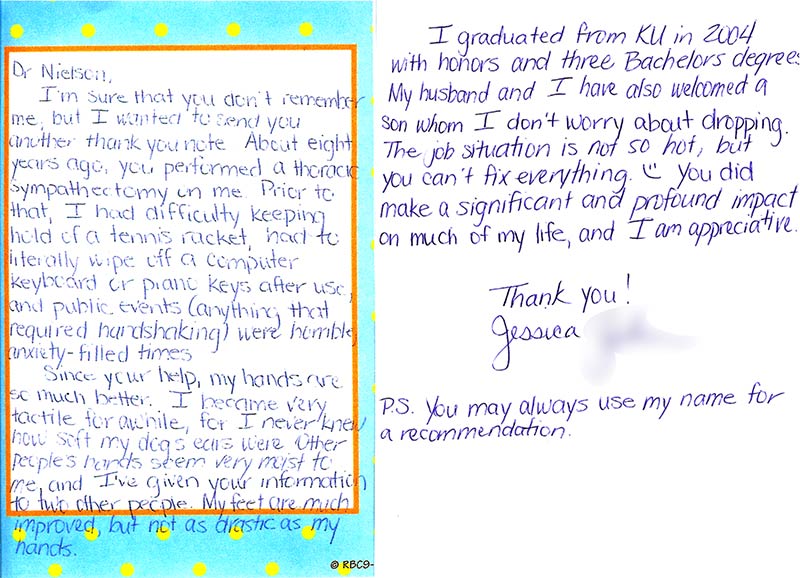 Dr Nielson,
I'm sure that you don't remember
me, but I wanted to send you
another thank you note. About eight
years ago, you performed a thoracic
sympathectomy on me. Prior to
that, I had difficulty keeping
hold of a tennis racket, had to
literally wipe off a computer
keyboard or piano keys after use,
and public events (anything that
required handshaking) were horrible,
anxiety-filled times
Since your help, my hands are
so much better. I became very
tactile for awhile, for I never knew
how soft my dogs ears were. Other
people's hands seem very moist to
me, and I've given your information
to two other people. My feet are much
improved, but not as drastic as my
hands.
© RBC9-
I graduated from KU in 2004
with honors and three Bachelors degrees
My husband and I have also welcomed a
son whom I don't worry about dropping.
The job situation is not so hot, but
you can't fix everything. You did
make a significant and profound impact
on much of my life, and I am appreciative.
Thank you!
Jessica
P.S. You may always use my name for
a recommendation.